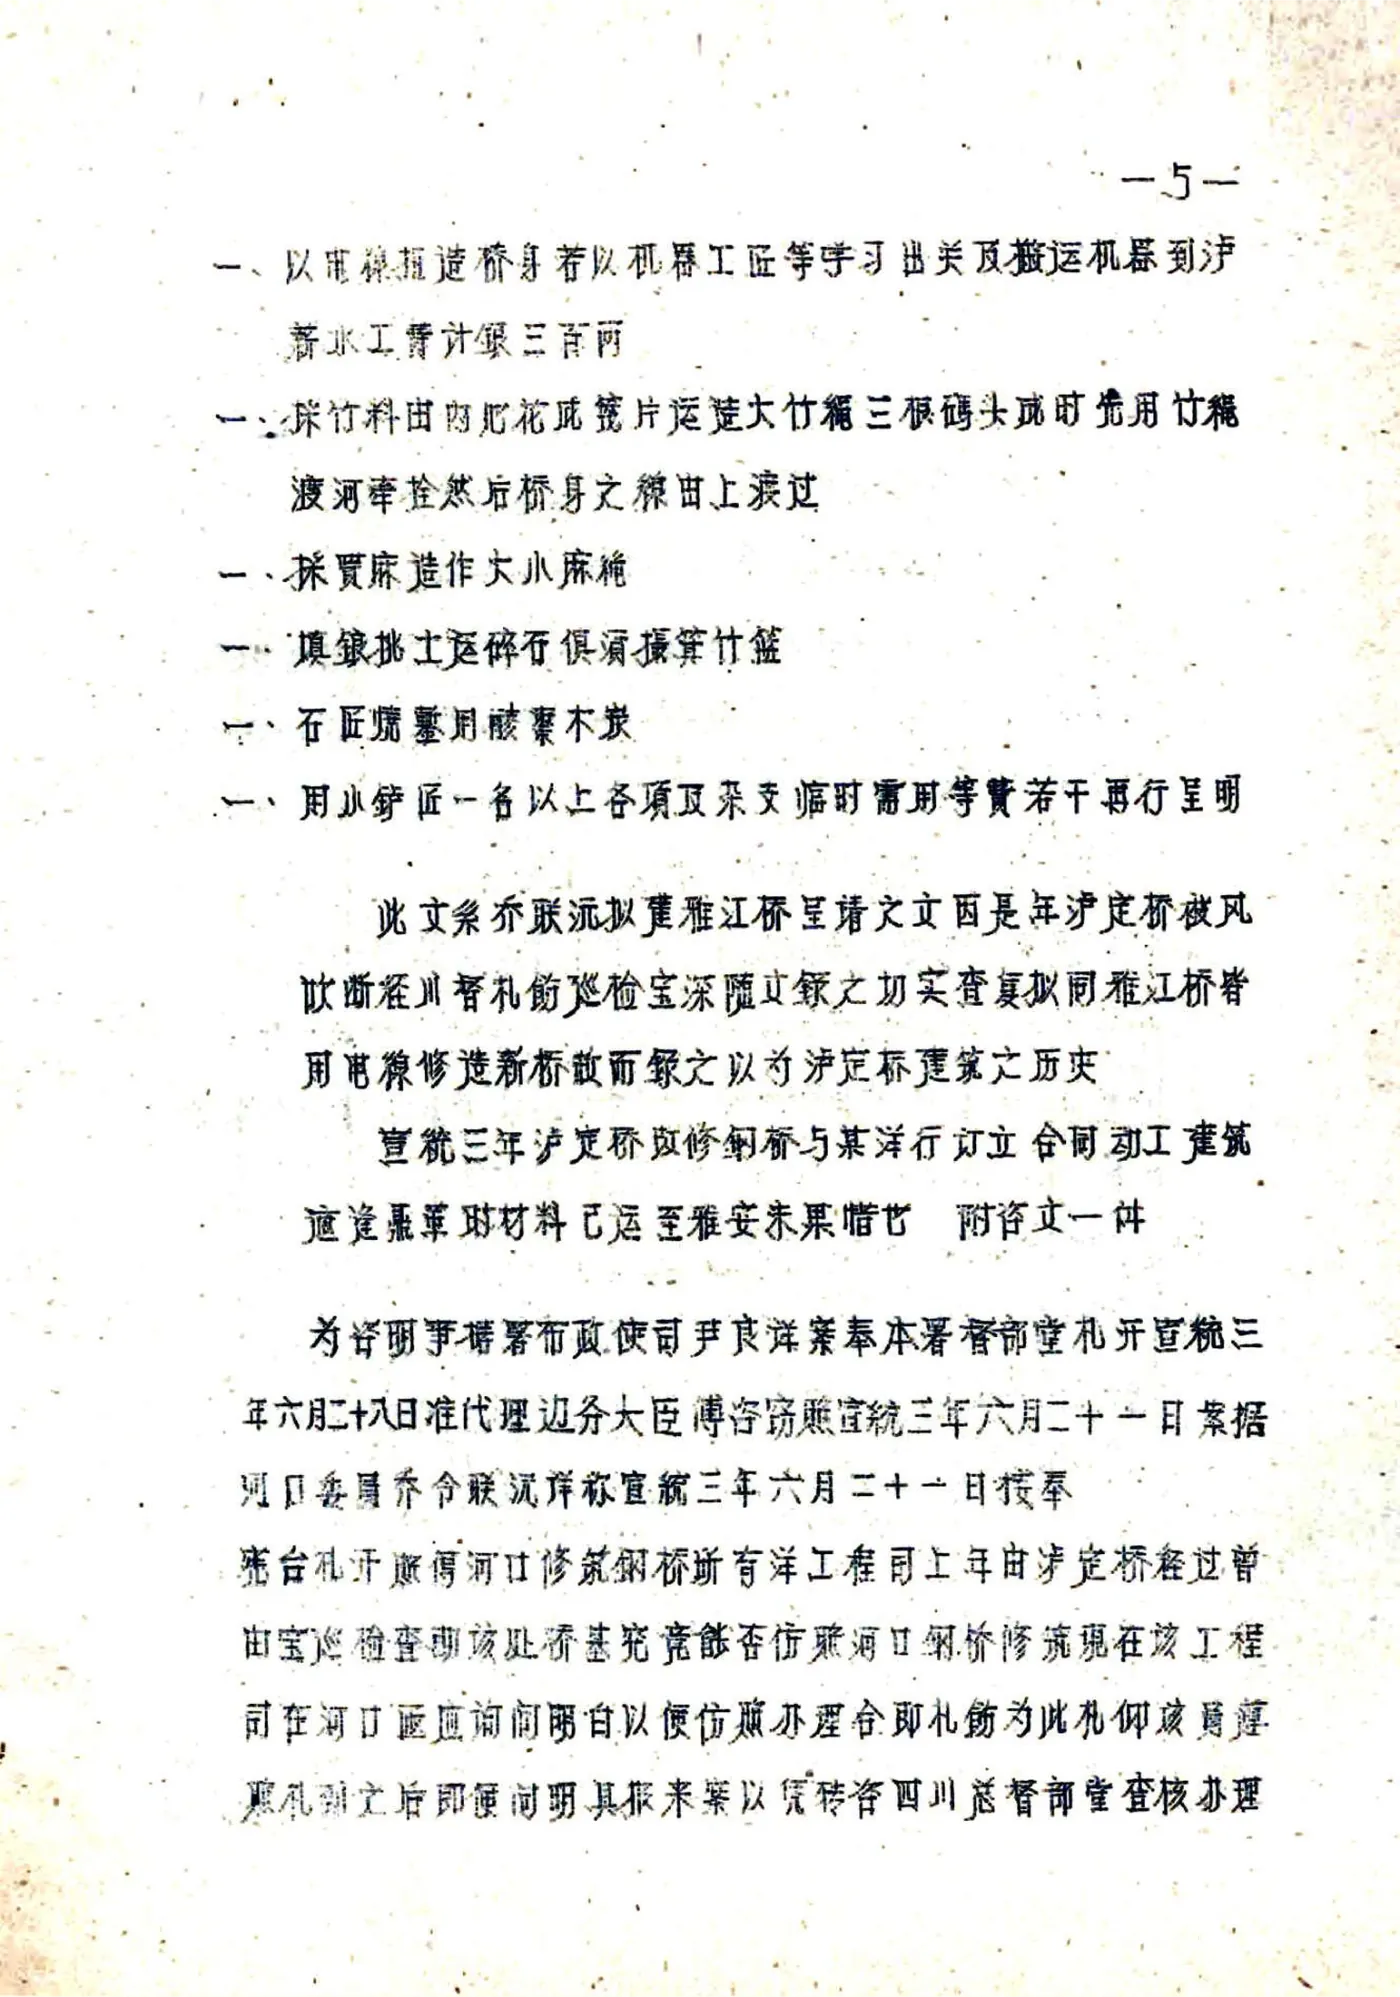 —5—
一、以电線扭造桥身若以机器工匠等学习出关及搬运机器到泸
薪水工膏计银三百两
一、採竹料由内地花成篾片运造大竹繩三根码头成时先用竹繩
渡河牵拴然后桥身之線由上渡过
一、採買麻造作大小麻繩
一、填鋃挑土运碎石俱须撮箕竹篮
一、石匠燒錾用木炭
一、用小炉匠一名以上各項及杂支临时需用等費若干再行呈明
此文系乔联沅拟建雅江桥呈请之文因是年泸定桥被风
吹断经川督札飭巡检宝深随文錄之切实查复拟同雅江桥皆
用电線修造新桥故而錄之以为泸定桥建筑之历史
宣統三年泸定桥改修鋼桥与某洋行订立合同动工建筑
適逢鼎革时材料已运至雅安未果惜也　附咨文一件
为咨明事据署布政使司尹良洋案奉本署督部堂札开宣統三
年六月二十八日准代理边务大臣傅咨窃照宣統三年六月二十一日案据
河口委員乔令联沅详称宣統三年六月二十一日接奉
宪台札开照得河口修筑鋼桥所有洋工程司上年由泸定桥经过曾
由宝巡检查勘该处桥基究竟能否仿照河口鋼桥修筑现在该工程
司在河口应询问明白以便仿照办理合即札飭为此札仰该員遵
照札到之后即便问明具报来案以凭转咨四川总督部堂查核办理